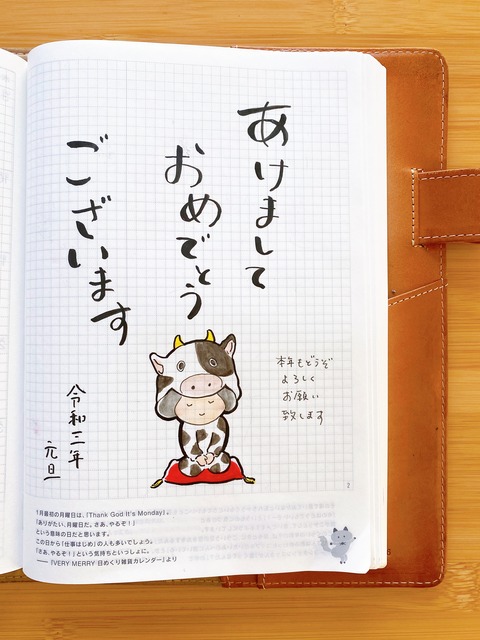 あけまして
おめでとう
ございます
本年もどうぞ
よろしく
お願い
致します
令和三年
元旦
2
1月最初の月曜日は、「Thank God It's Monday」。
「ありがたい、月曜日だ。さあ、やるぞ！」
という意味の日だと思います。
この日から「仕事はじめ」の人も多いでしょう。
「さあ、やるぞ！」という気持ちといっしょに。
――『VERY MERRY 日めくり雑貨カレンダー』より